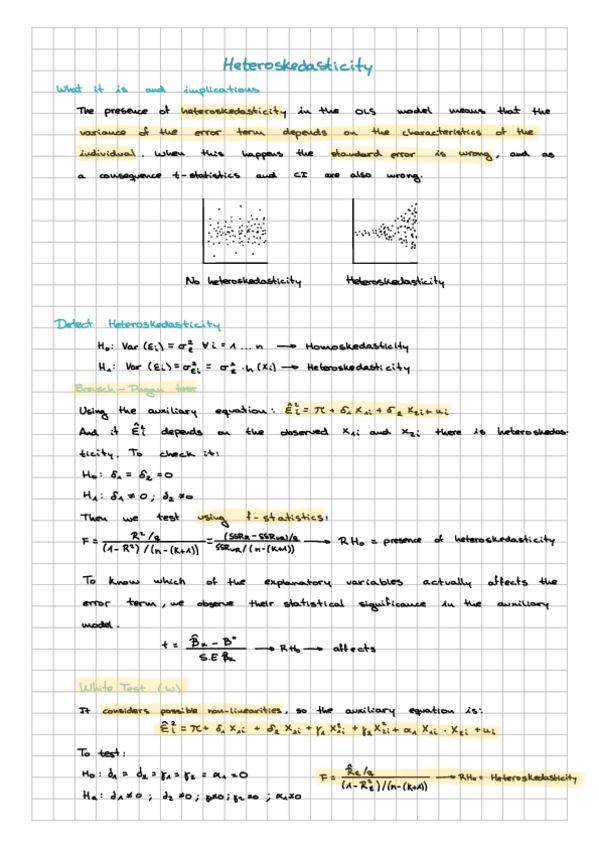 Heteroskedasticity
What it is and implications
The presence of heteroskedasticity in the OLS model means that the
variance of the error term depends on the characteristics of the
individual. When this happens the standard error is wrong, and as
a consequence t-statistics and CI are also wrong.
No heteroskedasticity Heteroskedasticity
Detect Heteroskedasticity
H₀: Var (εᵢ) = σ²_ε ∀ i = 1 ... n → Homoskedasticity
H₁: Var (εᵢ) = σ²_εi = σ²_ε · h (Xᵢ) → Heteroskedasticity
Breusch-Pagan test
Using the auxiliary equation: ε̂ᵢ² = π + δ₁ X₁ᵢ + δ₂ X₂ᵢ + uᵢ
And if ε̂ᵢ² depends on the observed X₁ᵢ and X₂ᵢ there is heteroskedas-
ticity. To check it:
H₀: δ₁ = δ₂ = 0
H₁: δ₁ ≠ 0 ; δ₂ ≠ 0
Then we test using f-statistics:
F = (R²/q) / ((1-R²)/(n-(k+1))) = ((SSR_R - SSR_UR)/q) / (SSR_UR/(n-(k+1))) → RH₀ = presence of heteroskedasticity
To know which of the explanatory variables actually affects the
error term, we observe their statistical significance in the auxiliary
model.
t = (B̂_k - B*) / (S.E B̂_k) → RH₀ → affects
White Test (w)
It considers possible non-linearities, so the auxiliary equation is:
ε̂ᵢ² = π + δ₁ X₁ᵢ + δ₂ X₂ᵢ + γ₁ X₁ᵢ² + γ₂ X₂ᵢ² + α₁ X₁ᵢ · X₂ᵢ + uᵢ
To test:
H₀: δ₁ = δ₂ = γ₁ = γ₂ = α₁ = 0 F = (R̂_ε/q) / ((1-R²_ε)/(n-(k+1))) → RH₀ = Heteroskedasticity
Hₐ: δ₁ ≠ 0 ; δ₂ ≠ 0 ; γ≠0 ; γ₂ ≠0 ; α₁≠0